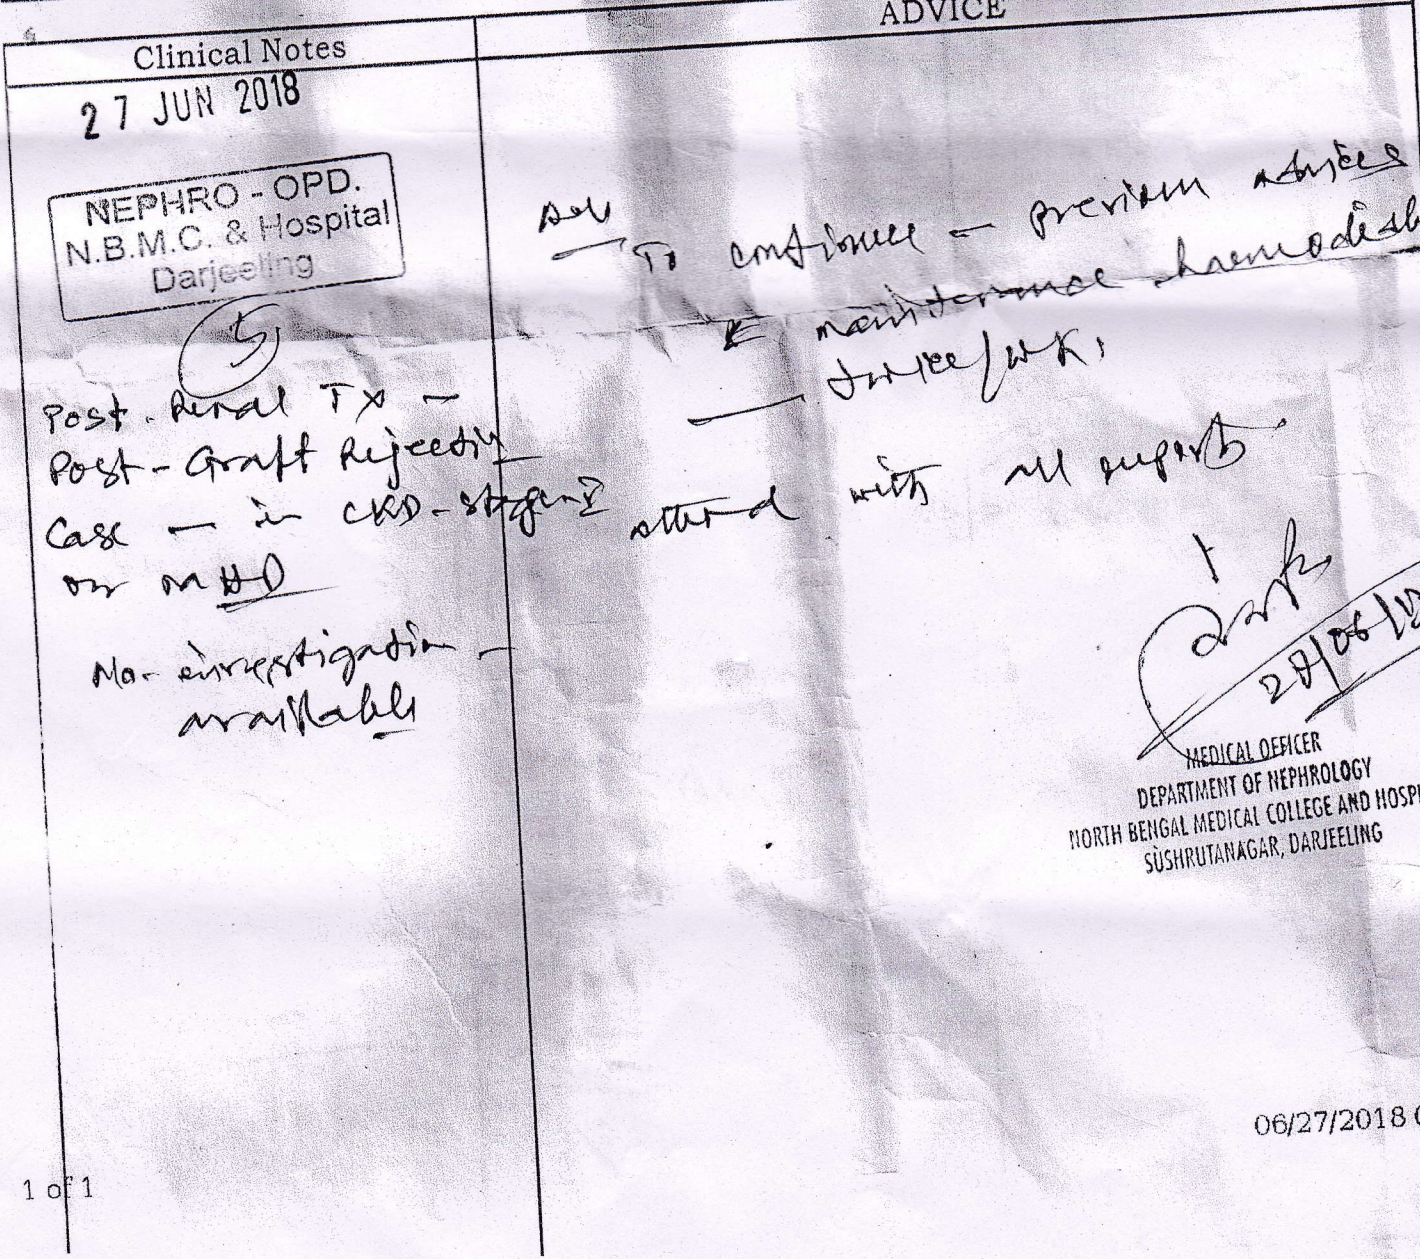 ADVICE
Clinical Notes
27 JUN 2018
NEPHRO - OPD.
N.B.M.C. & Hospital
Darjeeling
5
Post-Renal TX -
Post-Graft Rejection
Case - in CKD-stage-
on MHD
No- investigation -
available
Adv
To continue - previous advices
maintenance haemodial
twice/wk.
attend with all reports
/06/18
MEDICAL OFFICER
DEPARTMENT OF NEPHROLOGY
NORTH BENGAL MEDICAL COLLEGE AND HOSPI
SUSHRUTANAGAR, DARJEELING
06/27/2018
1 of 1